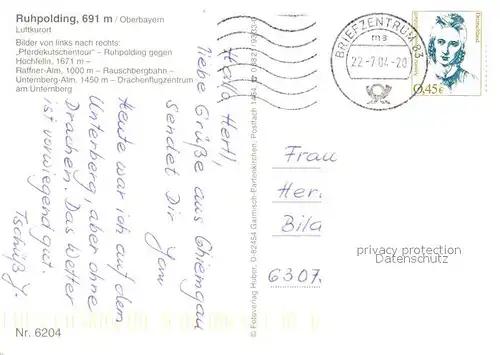 Ruhpolding, 691 m / Oberbayern
Luftkurort
Bilder von links nach rechts:
„Pferdekutschentour" – Ruhpolding gegen
Hochfelln, 1671 m –
Raffner-Alm, 1000 m – Rauschbergbahn –
Unternberg-Alm, 1450 m – Drachenflugzentrum
am Unternberg
Hallo Hertl,
liebe Grüße aus Chiemgau
sendet Dir
Heute war ich auf dem
Unterberg, aber ohne
Drachen. Das Wetter
ist vorwiegend gut.
Tschüß Y.
Nr. 6204
© Fotoverlag Huber, D-82454 Garmisch-Partenkirchen, Postfach 1454
BRIEFZENTRUM 83
ma
22.-7.04-20
Deutschland
0,45€
Frau
Her
Bila
6307
privacy protection
Datenschutz